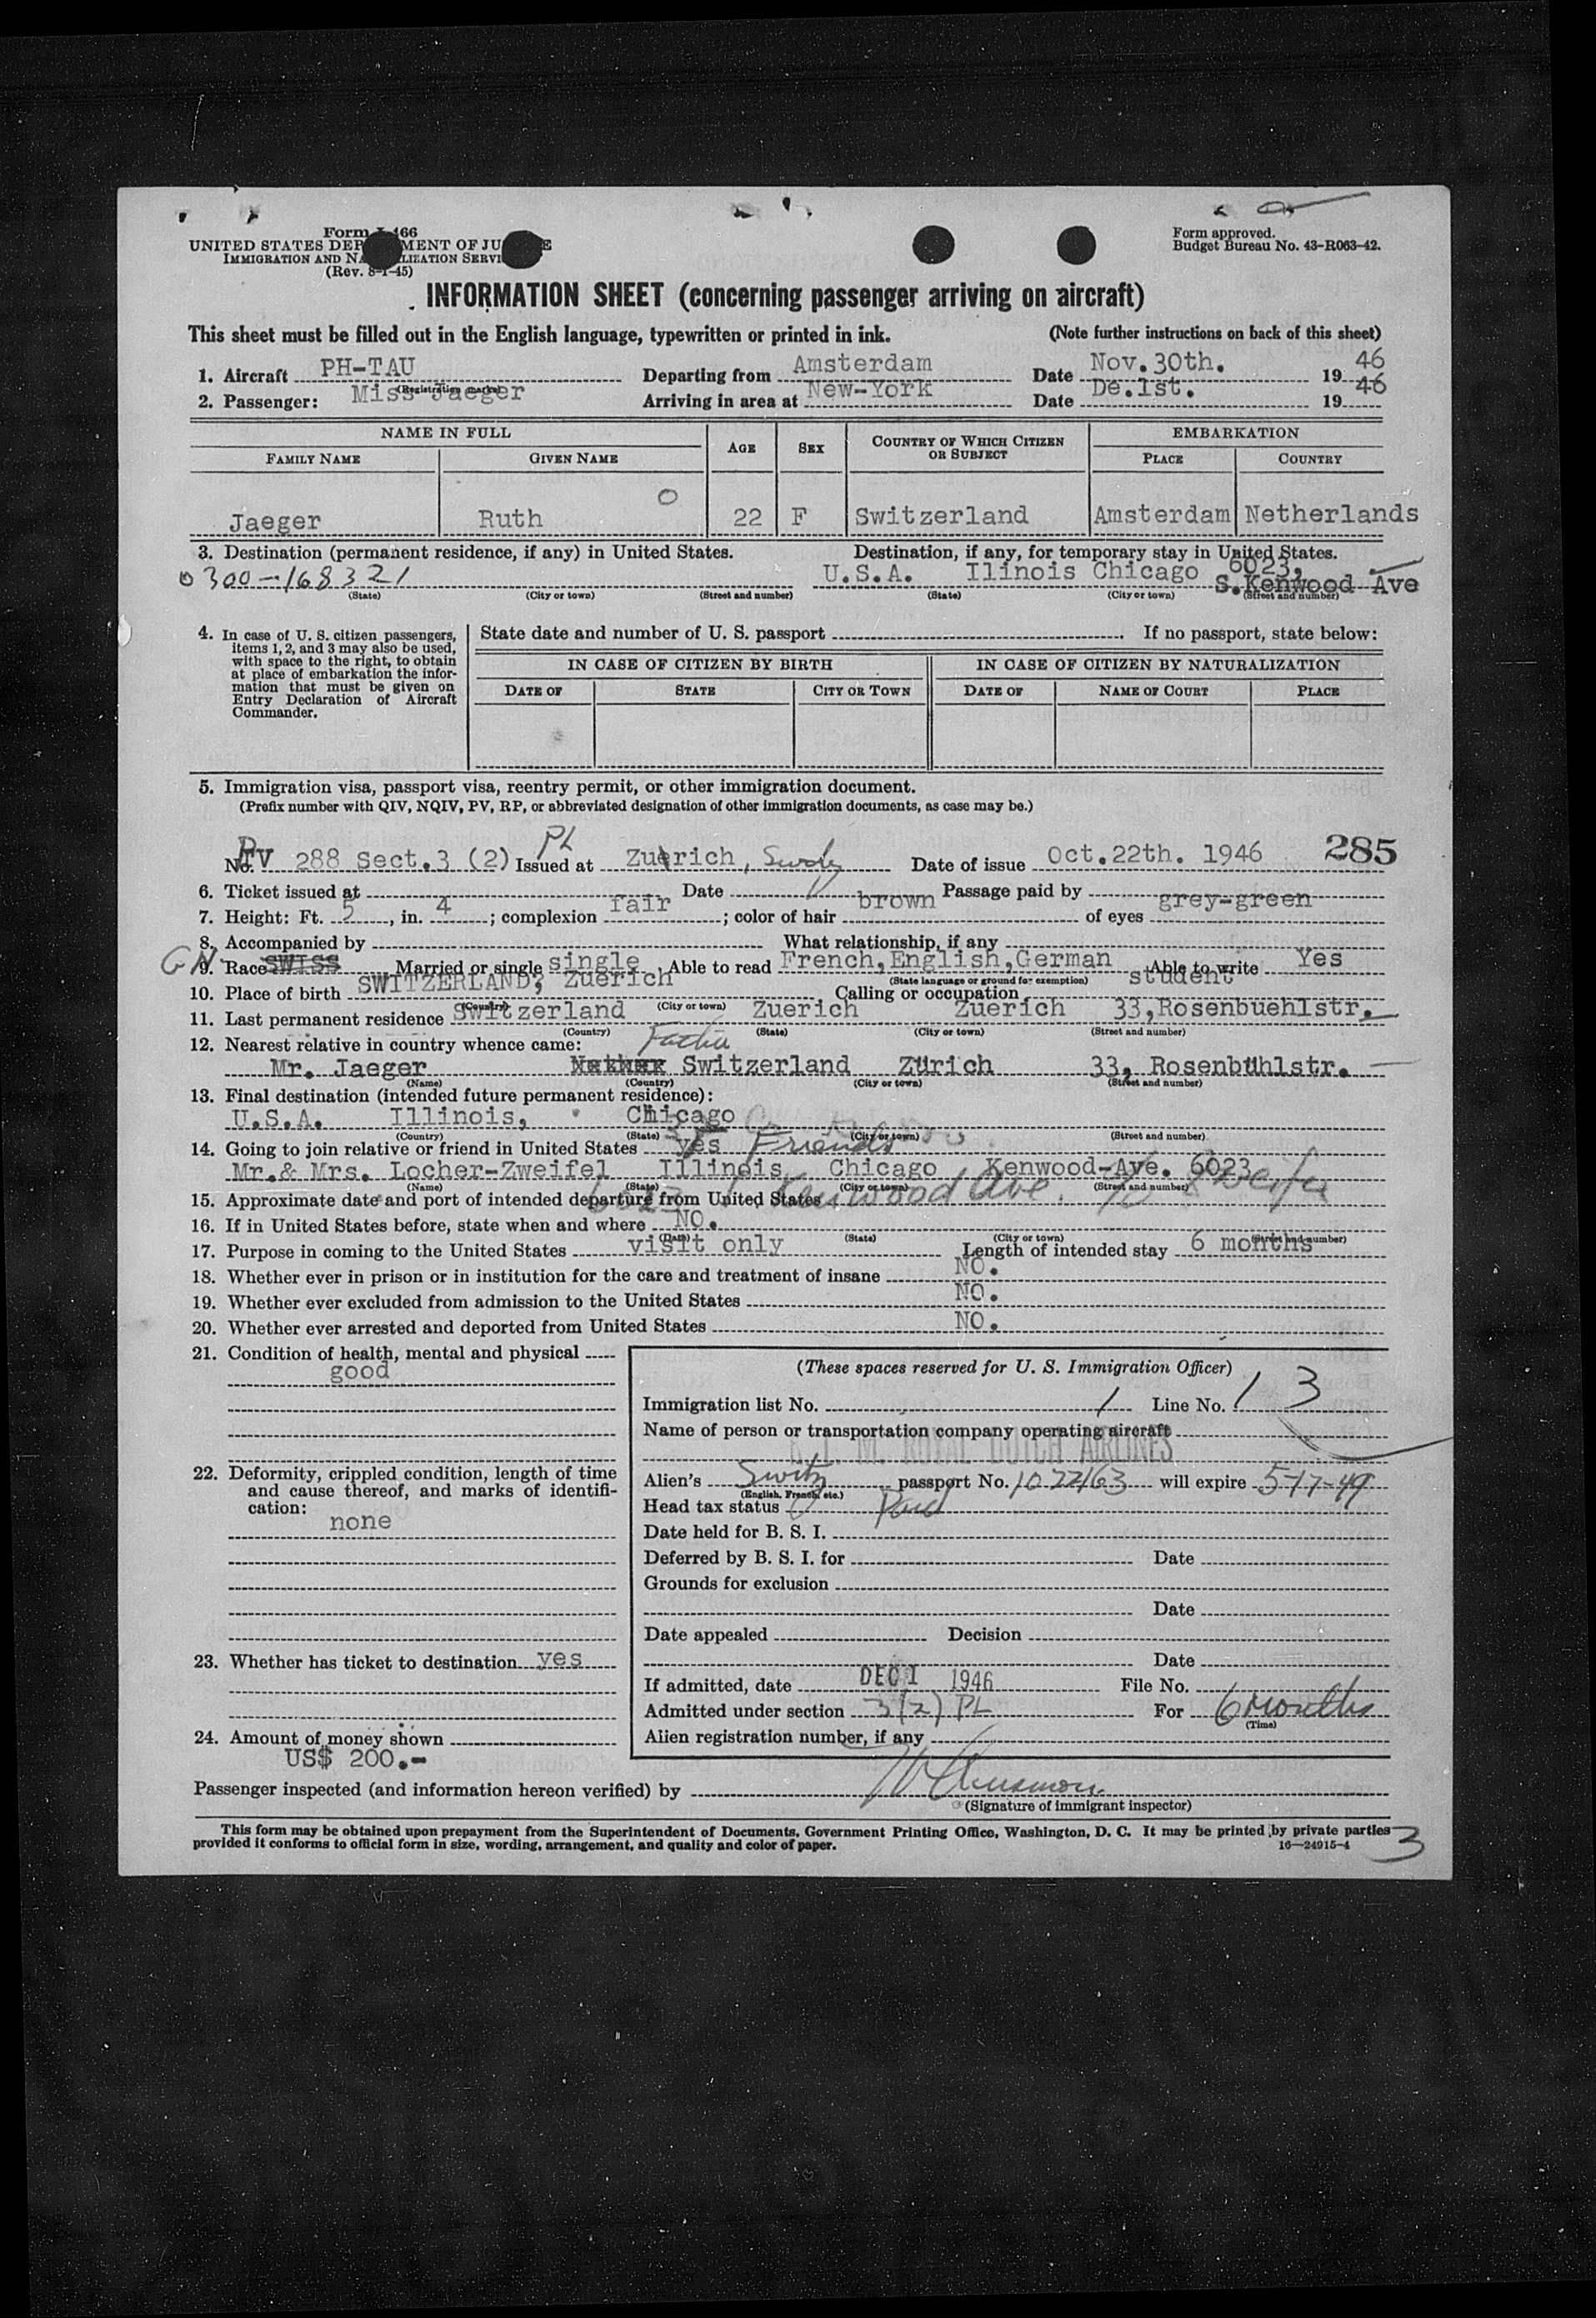 Form I-466
UNITED STATES DEPARTMENT OF JUSTICE
IMMIGRATION AND NATURALIZATION SERVICE
(Rev. 8-1-45)
Form approved.
Budget Bureau No. 43-R063-42.
INFORMATION SHEET (concerning passenger arriving on aircraft)
This sheet must be filled out in the English language, typewritten or printed in ink. (Note further instructions on back of this sheet)
1. Aircraft PH-TAU Departing from Amsterdam Date Nov.30th. 19 46
(Registration marks)
2. Passenger: Miss Jaeger Arriving in area at New-York Date De.1st. 19 46
NAME IN FULL AGE SEX COUNTRY OF WHICH CITIZEN OR SUBJECT EMBARKATION
FAMILY NAME GIVEN NAME PLACE COUNTRY
Jaeger Ruth 22 F Switzerland Amsterdam Netherlands
3. Destination (permanent residence, if any) in United States. Destination, if any, for temporary stay in United States.
0300-168321 U.S.A. Ilinois Chicago 6023, S.Kenwood Ave
(State) (City or town) (Street and number) (State) (City or town) (Street and number)
4. In case of U. S. citizen passengers, items 1, 2, and 3 may also be used, with space to the right, to obtain at place of embarkation the information that must be given on Entry Declaration of Aircraft Commander.
State date and number of U. S. passport . If no passport, state below:
IN CASE OF CITIZEN BY BIRTH IN CASE OF CITIZEN BY NATURALIZATION
DATE OF STATE CITY OR TOWN DATE OF NAME OF COURT PLACE
5. Immigration visa, passport visa, reentry permit, or other immigration document.
(Prefix number with QIV, NQIV, PV, RP, or abbreviated designation of other immigration documents, as case may be.)
PL
No. PV 288 Sect.3 (2) Issued at Zuerich, Date of issue Oct.22th. 1946 285
6. Ticket issued at Date Passage paid by
7. Height: Ft. 5, in. 4; complexion fair; color of hair brown of eyes grey-green
8. Accompanied by What relationship, if any
9. Race SWISS Married or single single Able to read French,English,German Able to write Yes
(State language or ground for exemption)
10. Place of birth SWITZERLAND, Zuerich Calling or occupation student
(Country) (City or town)
11. Last permanent residence Switzerland Zuerich Zuerich 33,Rosenbuehlstr.
(Country) (State) (City or town) (Street and number)
12. Nearest relative in country whence came: Father
Mr. Jaeger Switzerland Zürich 33, Rosenbühlstr.
(Name) (Country) (City or town) (Street and number)
13. Final destination (intended future permanent residence):
U.S.A. Illinois, Chicago
(Country) (State) (City or town) (Street and number)
14. Going to join relative or friend in United States yes Friends
Mr.& Mrs. Locher-Zweifel Illinois Chicago Kenwood-Ave. 6023
(Name) (State) (City or town) (Street and number)
15. Approximate date and port of intended departure from United States 6023 Kenwood Ave.
16. If in United States before, state when and where NO.
(Date) (State) (City or town) (Street and number)
17. Purpose in coming to the United States visit only Length of intended stay 6 months
18. Whether ever in prison or in institution for the care and treatment of insane NO.
19. Whether ever excluded from admission to the United States NO.
20. Whether ever arrested and deported from United States NO.
21. Condition of health, mental and physical
good
22. Deformity, crippled condition, length of time and cause thereof, and marks of identification:
none
23. Whether has ticket to destination yes
24. Amount of money shown
US$ 200.-
(These spaces reserved for U. S. Immigration Officer)
Immigration list No. 1 Line No. 1 3
Name of person or transportation company operating aircraft
K. L. M. ROYAL DUTCH AIRLINES
Alien's Switz passport No. 1022163 will expire 5-17-49
(English, French, etc.)
Head tax status Paid
Date held for B. S. I.
Deferred by B. S. I. for Date
Grounds for exclusion
Date
Date appealed Decision
Date
If admitted, date DEC 1 1946 File No.
Admitted under section 3(2) PL For 6 months
(Time)
Alien registration number, if any
Passenger inspected (and information hereon verified) by
(Signature of immigrant inspector)
This form may be obtained upon prepayment from the Superintendent of Documents, Government Printing Office, Washington, D. C. It may be printed by private parties
provided it conforms to official form in size, wording, arrangement, and quality and color of paper. 16—24915-4
3